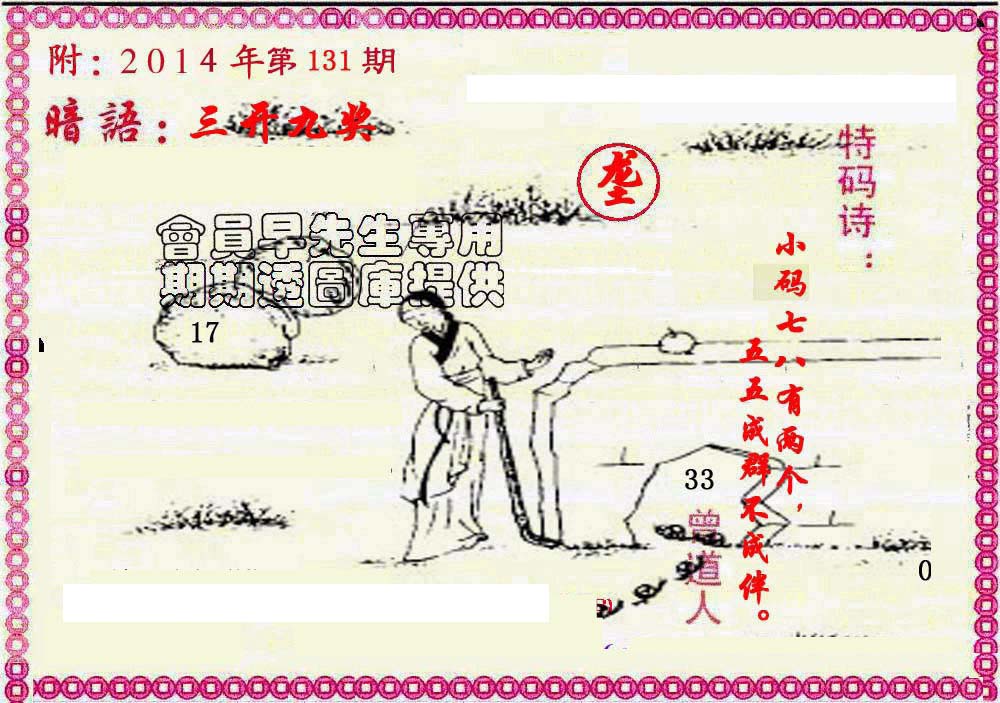 附：2014年第131期
暗語：三开九奖
垄
特码诗：
小码七八有两个，
五五成群不成伴。
會員早先生專用
期期透圖庫提供
17
33
曾道人
0